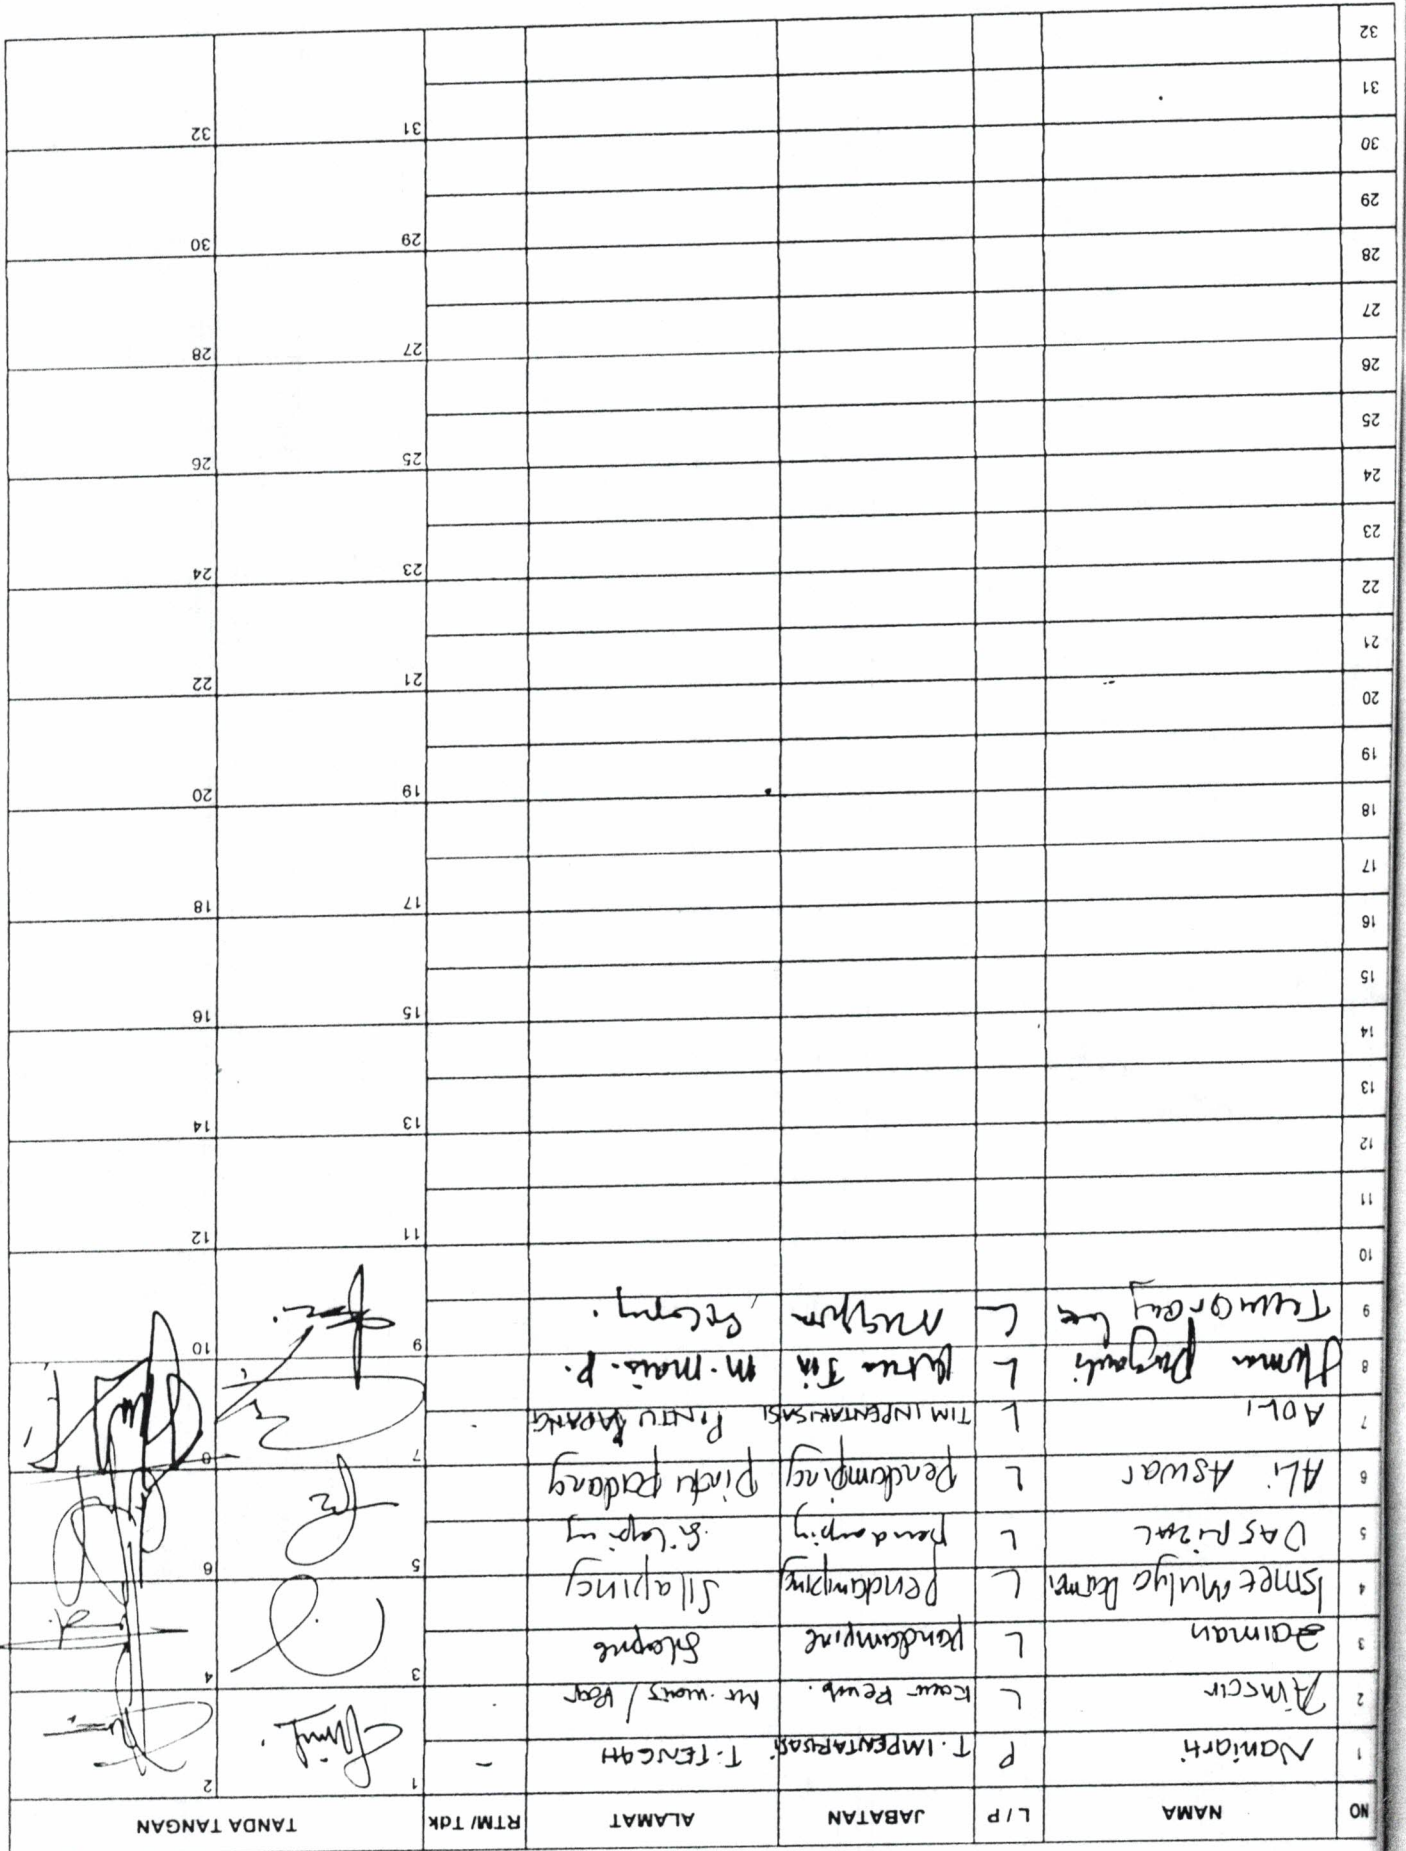 NO NAMA L / P JABATAN ALAMAT RTM/ Tdk TANDA TANGAN
1 Naniarti P T. IMPENTARISASI T. TENGAH - 1 2
2 L
3 Zaiman L Pendamping 3 4
4 Ismet Mulya L Pendamping Silaping
5 DASRIZAL L Pendamping Silaping 5 6
6 ALi ASWAR L Pendamping Pintu padang
7 ADLI L TIM INPENTARISASI PINTU PADANG 7 8
8 L
9 L 9 10
10
11 11 12
12
13 13 14
14
15 15 16
16
17 17 18
18
19 19 20
20
21 21 22
22
23 23 24
24
25 25 26
26
27 27 28
28
29 29 30
30
31 31 32
32